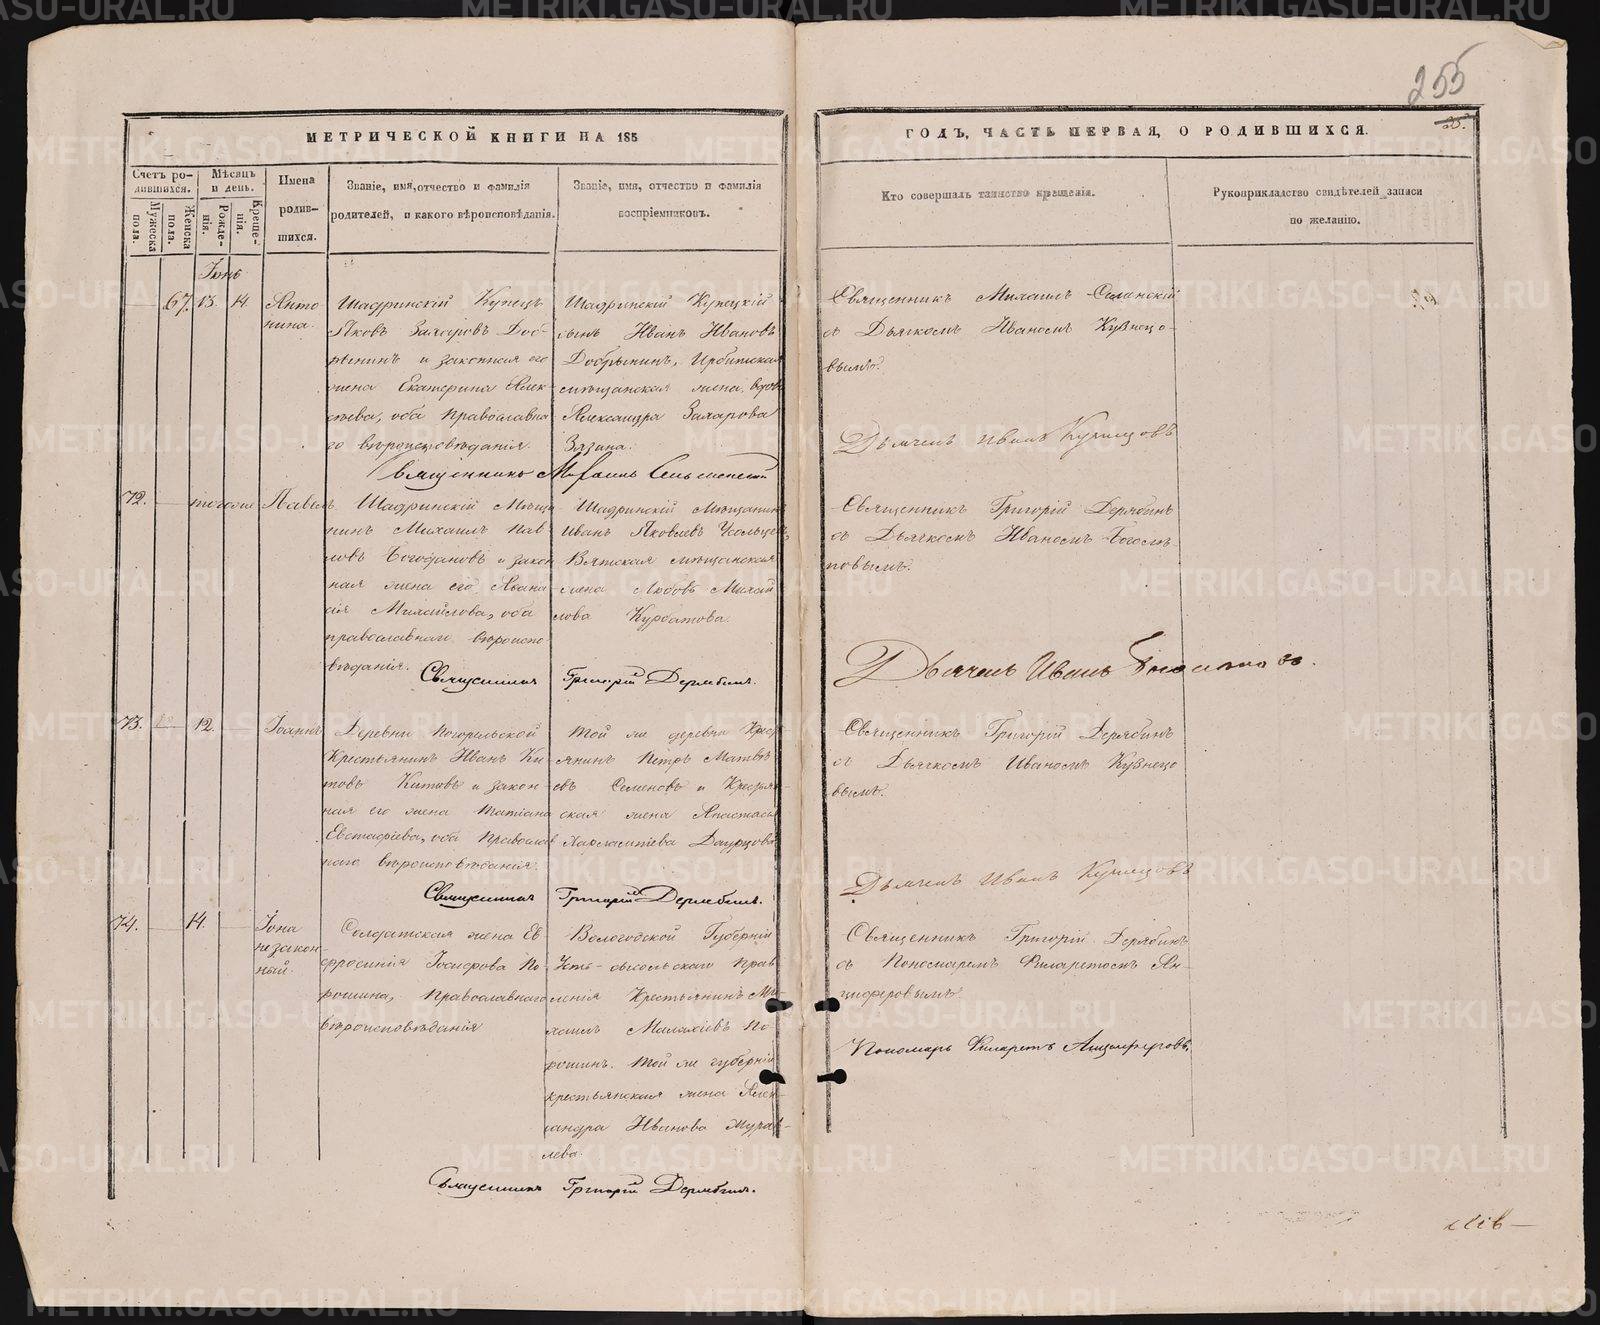 255
МЕТРИЧЕСКОЙ КНИГИ НА 185
ГОДЪ, ЧАСТЬ ПЕРВАЯ, О РОДИВШИХСЯ.
Счетъ родившихся.
Мужеска пола.
Женска пола.
Мѣсяцъ и день.
Рожденія.
Крещенія.
Имена родившихся.
Званіе, имя, отчество и фамилія
родителей, и какого вѣроисповѣданія.
Званіе, имя, отчество и фамилія
воспріемниковъ.
Кто совершалъ таинство крещенія.
Рукоприкладство свидѣтелей записи
по желанію.
Іюнь
67. 13. 14. Анто
нина.
Шадринскій Купецъ
Яковъ Захаровъ Доб-
рынинъ и законная его
жена Екатерина Алек-
сѣева, оба Православна
го вѣроисповѣданія.
Шадринскій Купецкій
сынъ Иванъ Ивановъ
Добрынинъ, Ирбитская
мѣщанская жена
Александра Захарова
Зязина.
Священникъ Михаилъ
съ Дьячкомъ Иваномъ Кузнецо-
вымъ.
Дьячекъ Иванъ Кузнецовъ
Священникъ Михаилъ
72. тогоже Павелъ
Шадринскій Мѣща
нинъ Михаилъ Пав
ловъ Богодановъ и закон
ная жена его Авана
сія Михайлова, оба
православнаго вѣроиспо-
вѣданія.
Шадринскій Мѣщанинъ
Иванъ Яковлевъ Усольцевъ,
Вятская мѣщанская
жена Любовь Михай
лова Курбатова.
Священникъ Григорій Дерябинъ
съ Дьячкомъ Иваномъ Богомъ
повымъ.
Дьячекъ Иванъ
Священникъ Григорій Дерябинъ.
73. 12. Іоаннъ
Деревни Погорѣльской
Крестьянинъ Иванъ Ки
товъ Китовъ и закон-
ная его жена Татіана
Евстафіева, оба Православ
наго вѣроисповѣданія.
Той же деревни Крест
янинъ Петръ Матвѣ
евъ Семеновъ и Крестья-
ская жена Анастасія
Харлампіева Даурцова
Священникъ Григорій Дерябинъ
съ Дьячкомъ Иваномъ Кузнецо
вымъ.
Дьячекъ Иванъ Кузнецовъ
Священникъ Григорій Дерябинъ.
74. 14. Іона
незакон-
ный.
Солдатская жена Ев-
фросинія Іосифова По-
рошина, Православнаго
вѣроисповѣданія
Вологодской Губерніи
Усть-сысольскаго Прав
ленія Крестьянинъ Ми-
хаилъ Малахіевъ По-
рошинъ. Той же губерніи
крестьянская жена Алек-
сандра Иванова Мурав-
лева.
Священникъ Григорій Дерябинъ
съ Пономаремъ Филаретомъ Ан-
циферовымъ.
Пономарь Филаретъ Анциферовъ.
Священникъ Григорій Дерябинъ.
METRIKI.GASO-URAL.RU